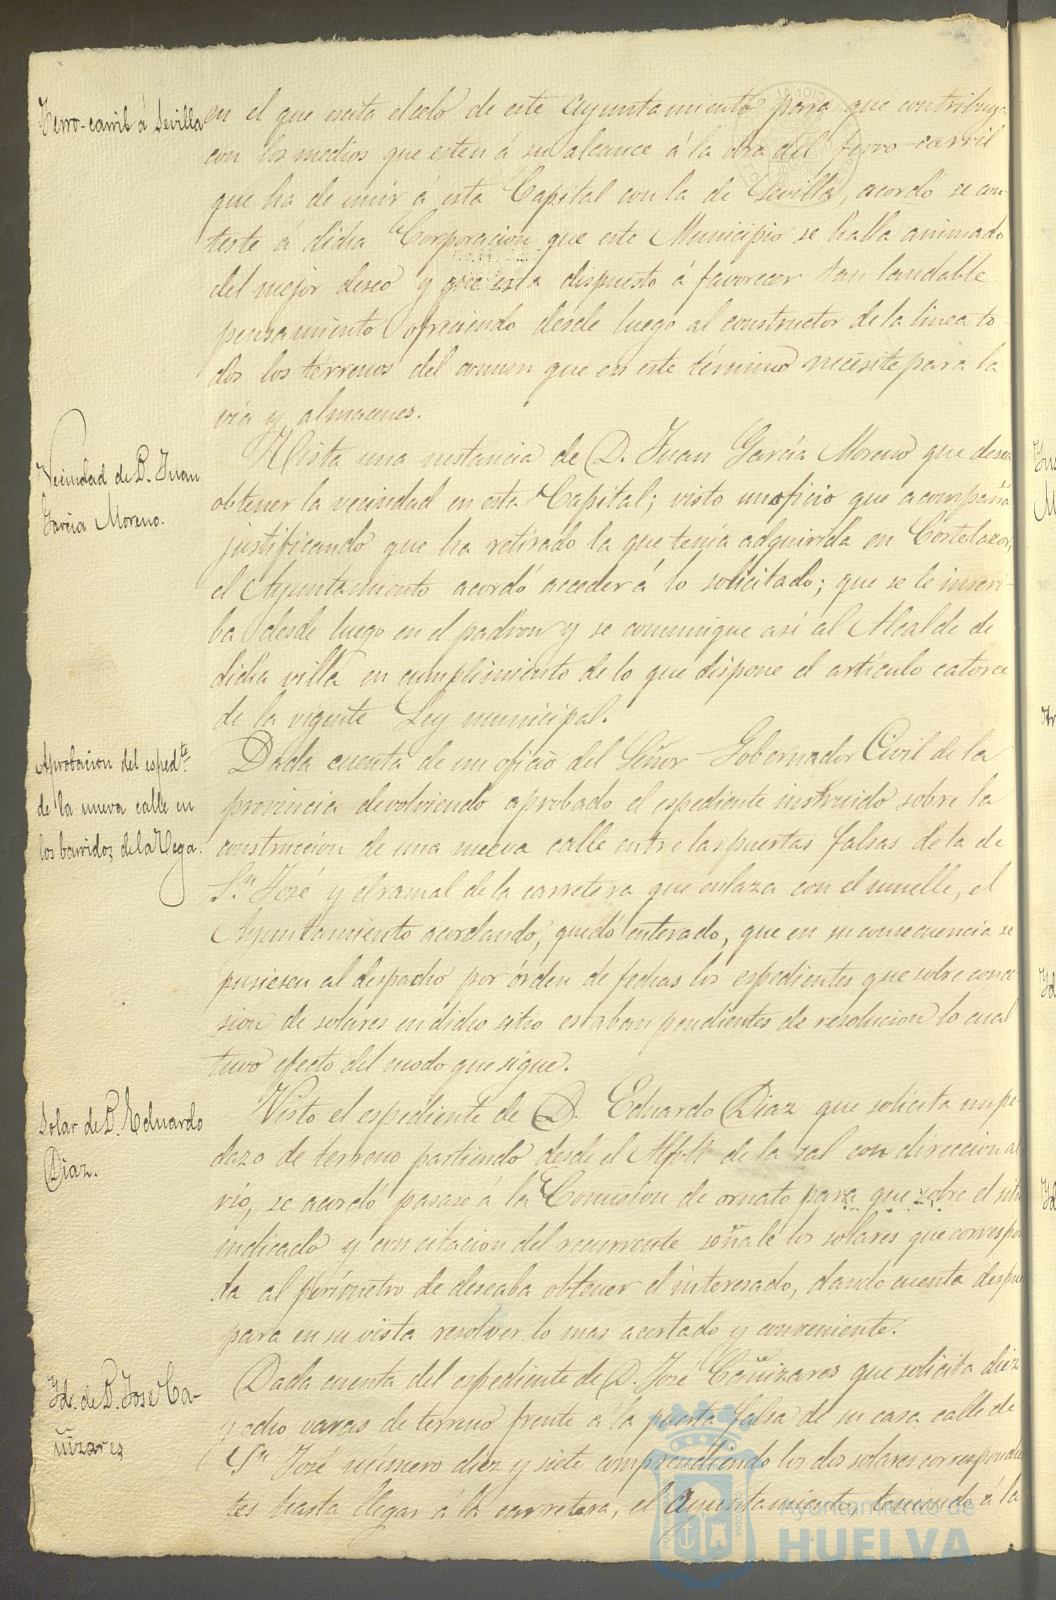 Ferro-carril á Sevilla
en el que exita el celo de este Ayuntamiento para que contribuya
con los medios que esten á su alcance á la obra del ferro-carril
que ha de unir á esta Capital con la de Sevilla, acordó se con
teste á dicha Corporacion que este Municipio se halla animado
del mejor deseo y que esta dispuesto á favorecer tan laudable
pensamiento ofreciendo desde luego al constructor de la linea to
dos los terrenos del comun que en este término necesite para la
via y almacenes.
Vecindad de D. Juan
Garcia Moreno.
Vista una instancia de D. Juan García Moreno que desea
obtener la vecindad en esta Capital; visto un oficio que acompaña
justificando que ha retirado la que tenía adquirida en Cortelazor,
el Ayuntamiento acordó acceder á lo solicitado; que se le inscri-
ba desde luego en el padron y se comunique así al Alcalde de
dicha villa en cumplimiento de lo que dispone el artículo catorce
de la vigente Ley municipal.
Aprobacion del espedte.
de la nueva calle en
los barridos de la Vega.
Dada cuenta de un oficio del Señor Gobernador Civil de la
provincia devolviendo aprobado el espediente instruido sobre la
construccion de una nueva calle entre las puertas falsas de la de
Sn. José y el ramal de la carretera que enlaza con el muelle, el
Ayuntamiento acordando, quedó enterado, que en su consecuencia se
pusiesen al despacho por órden de fechas los espedientes que sobre conce
sion de solares en dicho sitio estaban pendientes de resolucion lo cual
tuvo efecto del modo que sigue.
Solar de D. Eduardo
Diaz.
Visto el espediente de D. Eduardo Diaz que solicita un pe
dazo de terreno partiendo desde el Alfolí de la sal con direccion al
rio, se acordó pasase á la Comision de ornato para que sobre el sitio
indicado y con citacion del recurrente señale los solares que correspon
da al perímetro de deseaba obtener el interesado, dando cuenta despues
para en su vista resolver lo mas acertado y conveniente.
Id. de D. José Ca-
ñizares
Dada cuenta del espediente de D. José Cañizares que solicita diez
y ocho varas de terreno frente á la puerta falsa de su casa calle de
Sn. José número diez y siete comprendiendo los dos solares correspondien
tes hasta llegar á la carretera, el Ayuntamiento, tomando á la
Ayuntamiento de
HUELVA